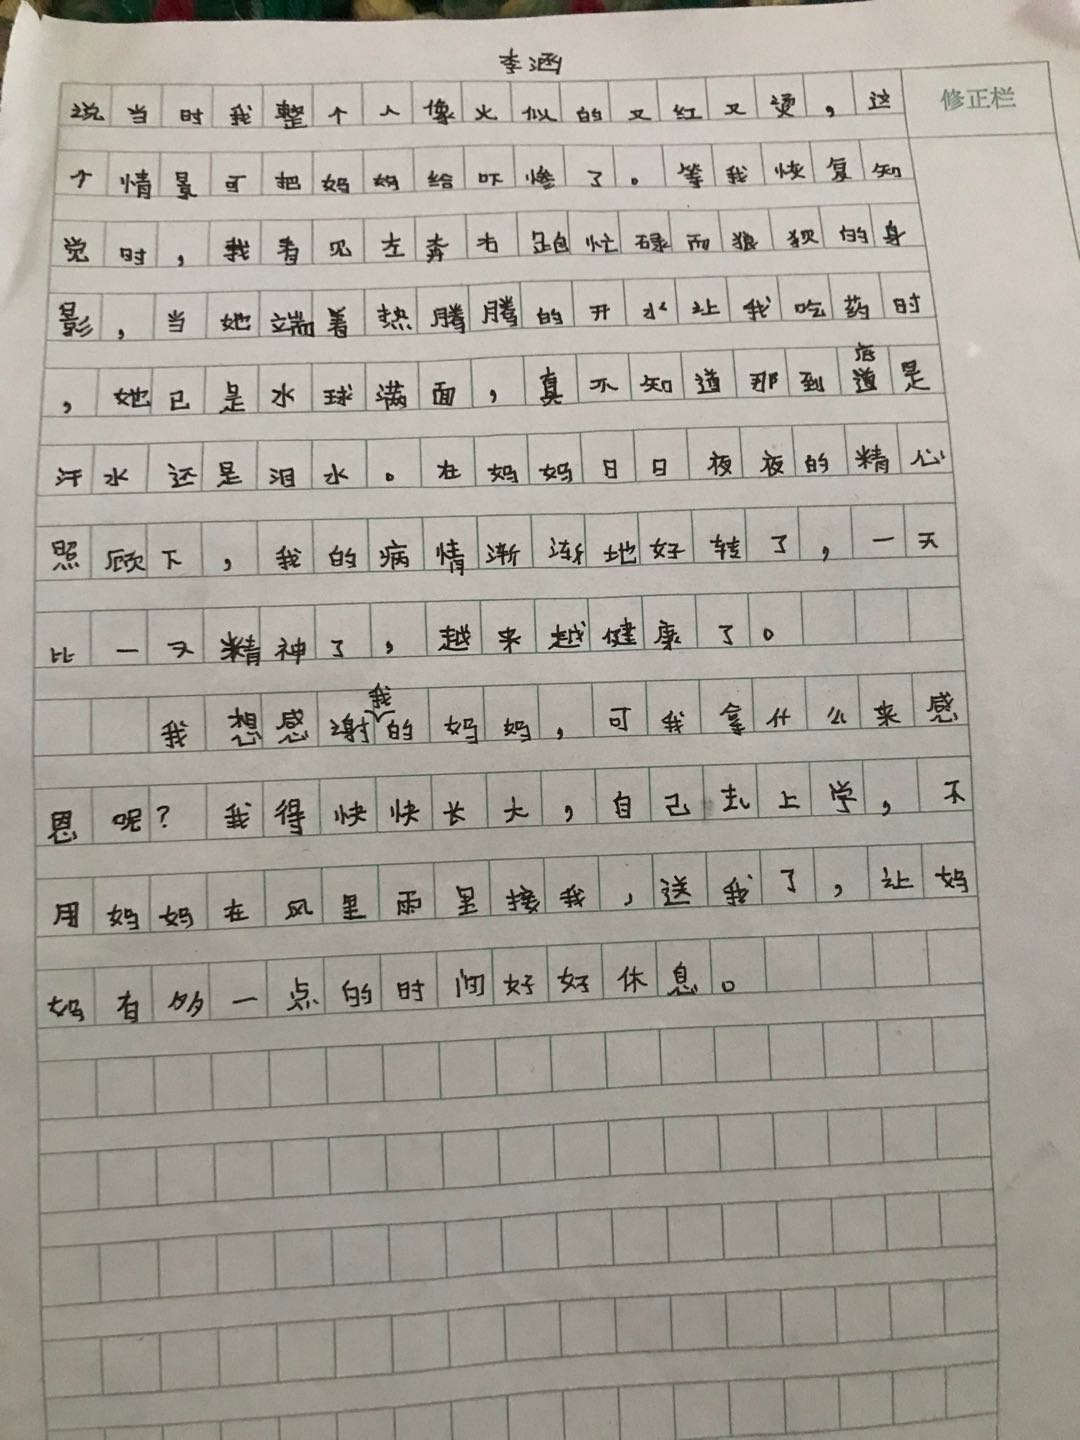 李涵
修正栏
说当时我整个人像火似的又红又烫，这
个情景可把妈妈给吓惨了。等我恢复知
觉时，我看见左奔右跑忙碌而狼狈的身
影，当她端着热腾腾的开水让我吃药时
，她已是水球满面，真不知道那到底道是
汗水还是泪水。在妈妈日日夜夜的精心
照顾下，我的病情渐渐地好转了，一天
比一天精神了，越来越健康了。
我想感谢我的妈妈，可我拿什么来感
恩呢？我得快快长大，自己去上学，不
用妈妈在风里雨里接我，送我了，让妈
妈有够一点的时间好好休息。